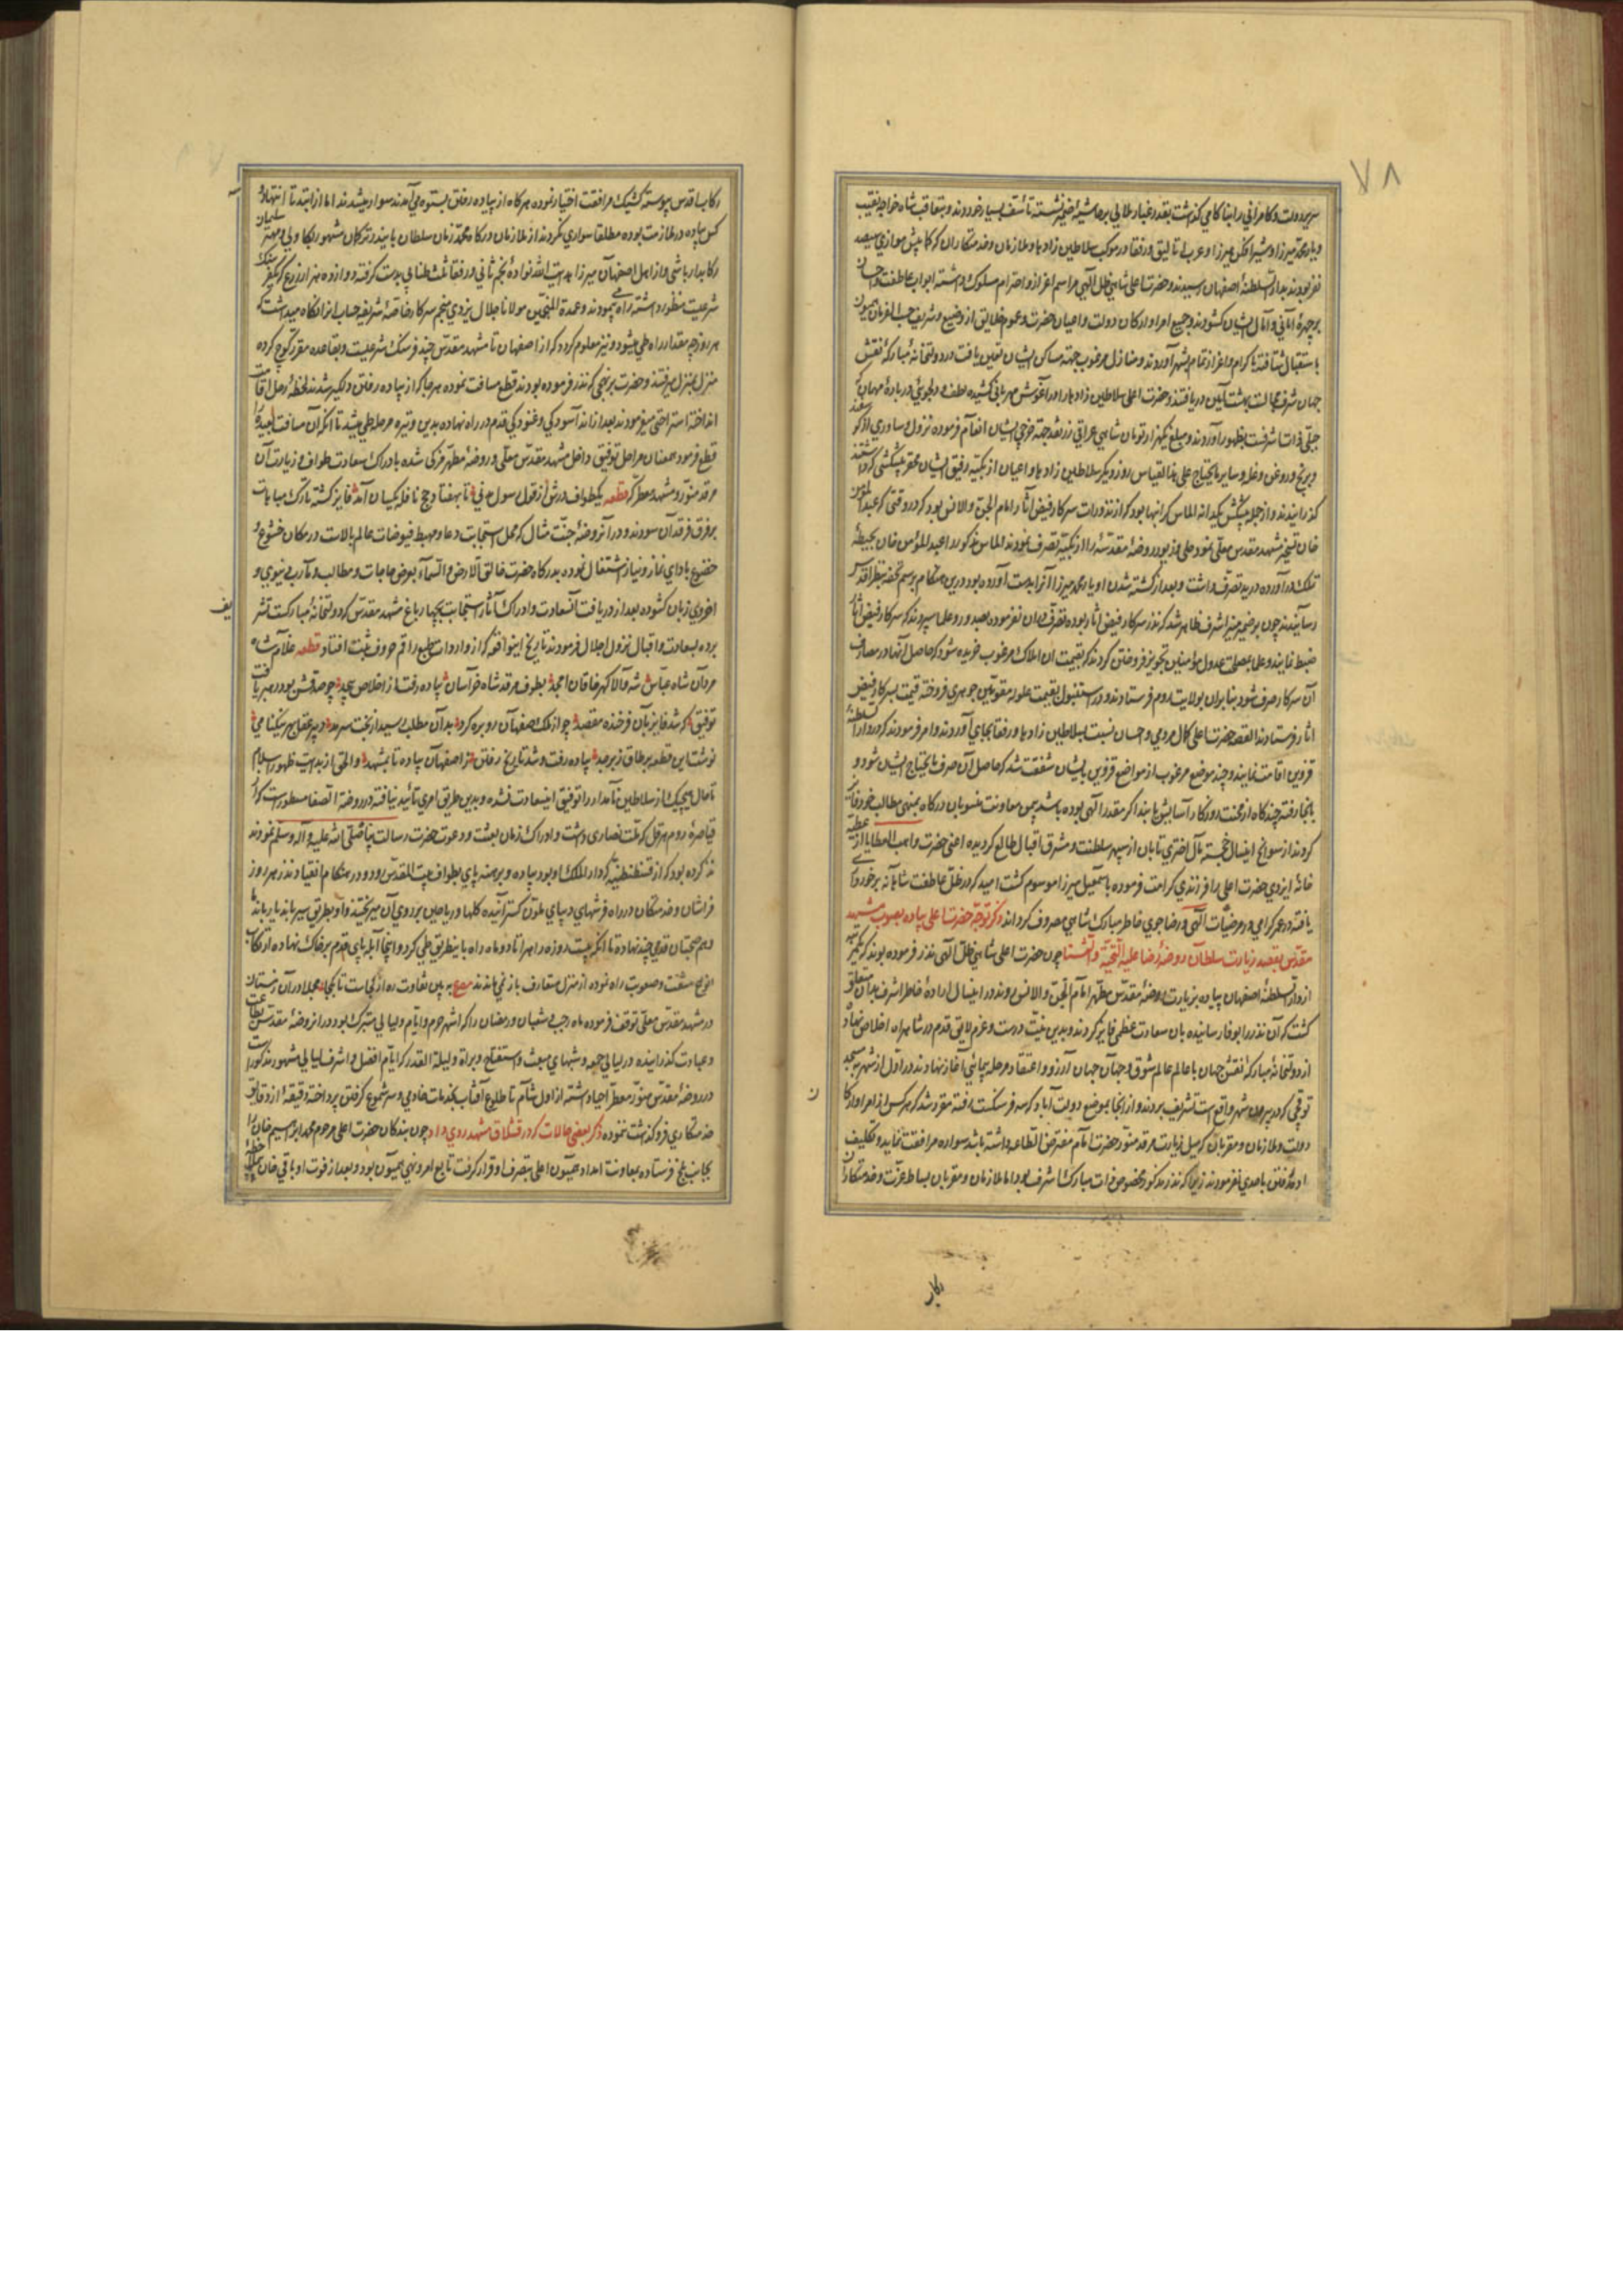 ٧٨
سریر دولت و کامرانی را بناکامی گذاشت بقدر غبار ملالی بر حاشیه ضمیر نشسته تأسف بسیار خوردند و متعاقب شاه خواجه نقیب
و یار محمد میرزا و شیرافکن میرزا و عرب اتالیق و رفقا در موکب سلاطین زادها و ملازمان و خدمتکاران که کمابیش موازی سیصد
نفر بودند بدار السلطنه اصفهان رسیدند و حضرت اعلی شاهی ظل الهی مراسم اعزاز و احترام مسلوک داشته ابواب عاطفت و احسان
بر چهره امانی و آمال ایشان گشودند و جمیع امرا و ارکان دولت و اعیان حضرت و عموم خلایق از وضیع و شریف حسب الفرمان همیون
باستقبال شتافته باکرام و اعزاز تمام بشهر آوردند و منازل مرغوب جهة مساکن ایشان تعیین یافت در دولتخانه مبارکه نقش
جهان شرف مجالست بهشت آیین دریافتند و حضرت اعلی سلاطین زادها را در آغوش مهربانی کشیده لطف و دلجوئی در باره مهمان که
جبلی ذات اشرفست بظهور آوردند و مبلغ یکهزار تومان شاهی عراقی زر نقد جهة خرجی ایشان انعام فرموده نزول و ساوری از گوسفند
و برنج و روغن و غله و سایر مایحتاج علی هذا القیاس روز دیگر سلاطین زادها و اعیان ازبکیه رفیق ایشان محقر پیشکشی که داشتند
گذرانیدند و از جمله پیشکش یکدانه الماس گرانبها بود که از نذورات سرکار فیض آثار امام الجن و الانس بود که در وقتی که عبدالمؤمن
خان تسخیر مشهد مقدس معلی نمود حلی و زیور روضه مقدسه را ازبکیه تصرف نمودند الماس مذکور را عبدالمؤمن خان بحیطه
تملک درآورده در ید تصرف داشت و بعد از کشته شدن او یار محمد میرزا آنرا بدست آورده بود درین هنگام برسم تحفه بنظر اقدس
رسانیدند چون بر ضمیر منیر اشرف ظاهر شد که نذر سرکار فیض آثار بوده تصرف در آن نفرموده بصدور و علما سپردند که سرکار فیض آثار
ضبط نمایند و علما بمصلحت عدول مؤمنین تجویز فروختن کردند که بقیمت آن املاک مرغوب خریده شود که حاصل آنها در مصارف
آن سرکار صرف شود بنابر آن بولایت روم فرستادند و در استنبول بقیمت مقومین جوهری فروخته قیمت بسرکار فیض
آثار فرستادند القصه حضرت اعلی کمال مردمی و احسان نسبت بسلاطین زادها و رفقا بجای آوردند و امر فرمودند که در دار السلطنه
قزوین اقامت نمایند و چند موضع مرغوب از مواضع قزوین بایشان شفقت شد که حاصل آن صرف مایحتاج ایشان شود و
بانجا رفته چند گاه از محنت روزگار آسایش یابند اگر مقدر الهی بوده باشد بیمن معاونت منسوبان درگاه بمنتهی مطالب خود فایز
گردند از سوانح اینسال خجسته مآل اختری تابان از سپهر سلطنت و مشرق اقبال طالع گردیده اعنی حضرت واهب العطایا از عطیه
خانه ایزدی حضرت اعلی را فرزندی کرامت فرموده باسمعیل میرزا موسوم گشت امید که در ظل عاطفت شاهانه برخورداری
یافته در عمر گرامی و در مرضیات الهی و رضاجوی خاطر مبارک شاهی مصروف گرداند ذکر توجه حضرت اعلی پیاده بصوب مشهد
مقدس بقصد زیارت سلطان روضه رضا علیه التحیة و الثنا چون حضرت اعلی شاهی ظل الهی نذر فرموده بودند که یکمرتبه
از دار السلطنه اصفهان پیاده بزیارت روضه مقدس مطهر امام الجن و الانس روند در اینسال اراده خاطر اشرف بدان متعلق
گشت که آن نذر را بوفا رسانیده بآن سعادت عظمی فایز گردند و بدین نیت درست و عزم لایق قدم در شاهراه اخلاص نهاد
از دولتخانه مبارکه نقش جهان با عالم عالم شوق و جهان جهان آرزو و اعتقاد مرحله پیمائی آغاز نهادند و روز اول از شهر بمسجد
توقچی که در بیرون شهر واقع است تشریف بردند و از انجا بموضع دولت آباد که سه فرسنگست رفته مقرر شد که هر کس از امرا و ارکان
دولت و ملازمان و مقربان که میل زیارت مرقد منور حضرت امام مفترض الطاعه داشته باشد سواره مرافقت نماید و تکلیف
رفتن باحدی نفرمودند زیرا که نذر مذکور مخصوص ذات مبارک اشرف بود اما ملازمان و مقربان بساط عزت و خدمتکاران
رکاب
رکاب اقدس پیوسته کشیک مرافقت اختیار نموده هرگاه از پیاده رفتن بستوه می آمدند سوار میشدند اما از ابتدا تا انتها سه
کس پیاده در ملازمت بوده مطلقا سواری نکردند از ملازمان درگاه محمد زمان سلطان بایندر ترکمان مشهور بکاولی و مهتر سلمان
رکابدار باشی و از اهل اصفهان میرزا هدایت الله نواده نجم ثانی و رفقا ثلث طنابی بدست گرفته دوازده هزار ذرع که یکفرسنگ
شرعیست منظور داشته راه می پیمودند و عمدة المنجمین مولانا جلال یزدی منجم سرکار خاصه شریفه حساب انرا نگاه میداشت که
هر روز چه مقدار راه طی میشود و نیز معلوم گردد که از اصفهان تا مشهد مقدس چند فرسنگ شرعیست و بقاعده مقرر کوچ کرده
منزل بمنزل میرفتند و حضرت بر نهجی که نذر فرموده بودند قطع مسافت نموده هر جا که از پیاده رفتن دلگیر شدند لحظه رحل اقامت
انداخته استراحتی میفرمودند بعد از اندک آسودگی و غنودگی قدم در راه نهاده بدین وتیره مرحله طی میشد تا آنکه آن مسافت بعیده را
قطع فرموده بعد از مراحل بتوفیق داخل مشهد مقدس معلی و روضه مطهر مزکی شده بادراک سعادت طواف و زیارت آن
مرقد منور و مشهد معطر که قطعه یکطواف درش از قول رسول مدنی تا بهفتاد حج نافله یکسان آمد فایز گشته تارک مباهات
بر فرق فرقدان سودند و در آن روضه جنت مثال که محل استجابت دعا و مهبط فیوضات عالم بالاست در مکان خشوع و
خضوع باداي نماز و نیاز اشتغال نموده بدرگاه حضرت خالق الارض و السماء بعرض حاجات و مطالب و مآرب دنیوی و
اخروی زبان گشوده بعد از دریافت آنسعادت و ادراک آثار استجابت بچهار باغ مشهد مقدس که دولتخانه مبارکست تشریف
برده بسعادت و اقبال نزول اجلال فرمودند تاریخ اینواقعه که از واردات طبع راقم حروف ثبت افتاد قطعه غلام شاه
مردان شاه عباس شه والا گهر خاقان امجد بطوف مرقد شاه خراسان پیاده رفت از اخلاص بیحد چو صدقش بود رهبر یافت
توفیق که شد فایز بآن فرخنده مقصد چو از ملک صفهان رو بره کرد بدان مطلب رسید از بخت سرمد دبیر عقل بهر نیکنامی
نوشت این قطعه بر طاق زبرجد پیاده رفت و شد تاریخ رفتن ز اصفهان پیاده تا بمشهد و الحق از بدایت ظهور اسلام
تا حال هیچیک از سلاطین نامدار را توفیق اینسعادت نشده و بدین طریق امری تأیید نیافته در روضة الصفا مسطور است که از
قیاصره روم هرقل که ملت نصاری داشت و ادراک زمان بعثت و دعوت حضرت رسالت پناه صلی الله علیه و آله و سلم نمودند
نذر کرده بود که از قسطنطنیه که دار الملک او بود پیاده و برهنه پای بطواف بیت المقدس رود و در هنگام انعقاد نذر هر روز
فراشان و خدمتکاران در راه فرشهای دیبای ملون گسترانیده گلها و ریاحین بر روی آن میریختند و او بطریق سیر با ندما
و هم صحبتان قدمی چند نهاده تا آنکه بیست روزه راه را تا دو ماه راه باینطریق طی کرد و اینجا آبله پای قدم بر خاک نهاده ارتکاب
انواع مشقت و صعوبت راه نموده از منزل متعارف باز نمی ماندند مصرع ببین تفاوت ره از کجاست تا بکجا مجملا در آن زمستان
در مشهد مقدس معلی توقف فرموده ماه رجب و شعبان و رمضان را که اشهر حرم و ایام و لیالی متبرک بود در آن روضه مقدسه بطاعت
و عبادت گذرانیده در لیالی جمعه و شبهای مبعث و استفتاح و براة و لیلة القدر که ایام افضل و اشرف لیالی مشهور مذکور است
در روضه مقدس منور معطر احیا داشته از اول شام تا طلوع آفتاب بخدمات خادمی و سر شموع گرفتن پرداخته دقیقه از دقایق
خدمتکاری فروگذاشت ننموده ذکر بعضی حالات که در قشلاق مشهد روی داد چون بندگان حضرت اعلی مرحوم محمد ابراهیم خان را
بجانب بلخ فرستاده بمعاونت امداد همیون اعلی بتصرف او قرار گرفت تابع امر و نهی همیون بود و بعد از فوت او باقی خان